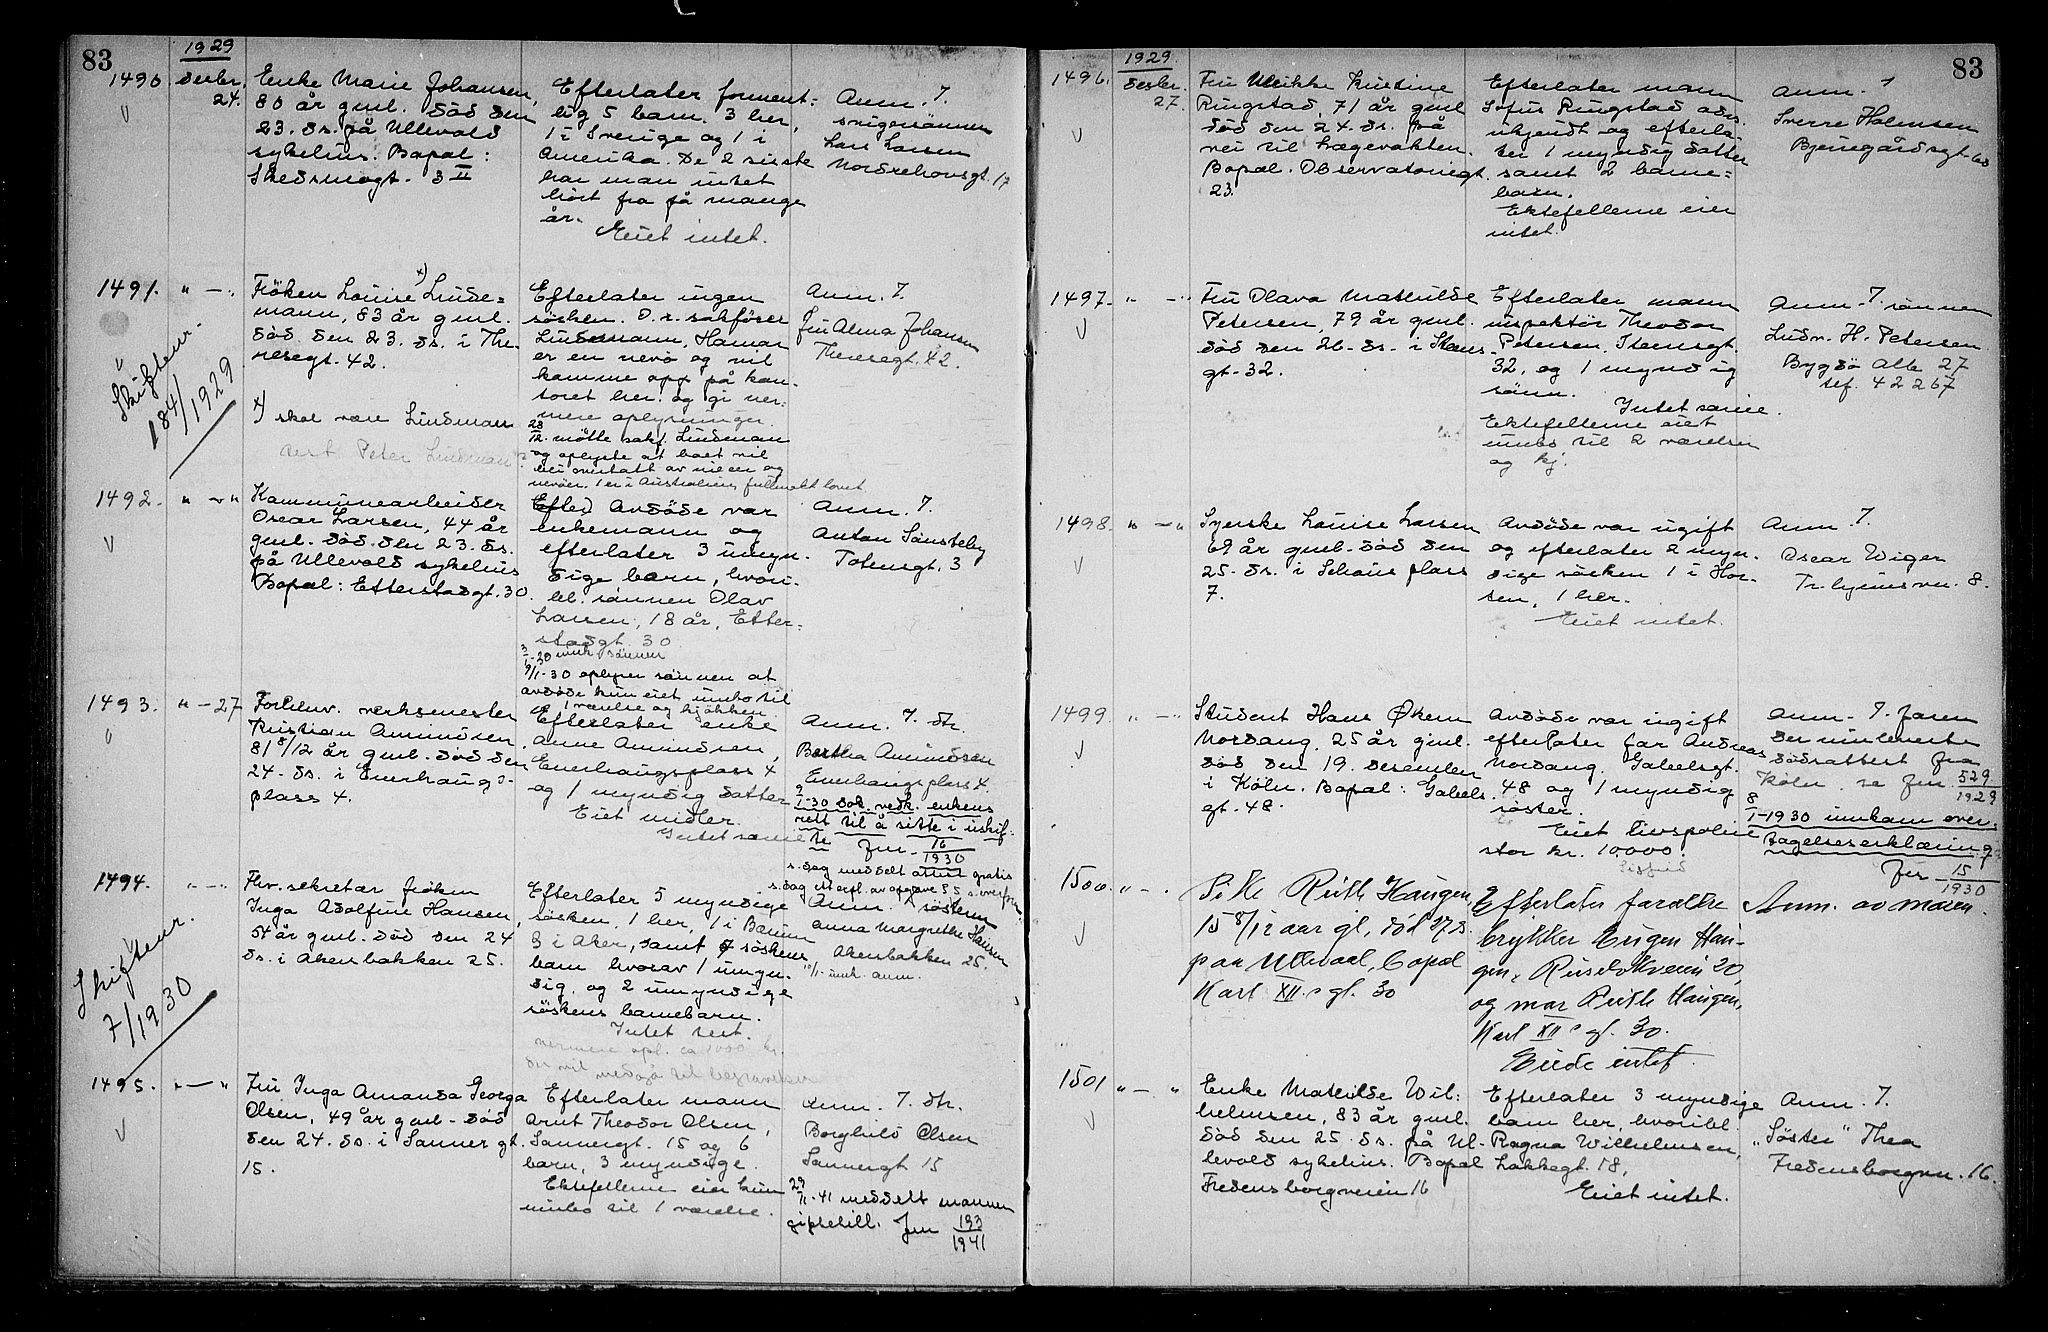 83
1929
1490
Desbr.
24.
Enke Marie Johansen,
80 år gml. död den
23. ds. på Ullevold
sykehus. Bopæl:
Skedsmogt. 3 II
Efterlater forment=
lig 5 barn. 3 her,
1 i Sverige og 1 i
Amerika. De 2 siste
har man intet
hört fra på mange
år.
Eiet intet.
Anm. J.
svigersönnen
Lars Larsen
Nordrehovsgt. 17
1491.
" — "
Fröken Louise x) Linde=
mann, 83 år gml.
död den 23. ds. i The
resegt. 42.
x) skal være Lindman
test Peter Lindman
Skiftenr.
184/1929
Efterlater ingen
sösken. O.r. sakförer
Lindemann, Hamar
er en nevö og vil
komme opp på kon-
toret her og gi nær-
mere oplysninger.
28/12. mötte sakf. Lindman
og oplyste at boet vil
bli overtatt av nieer og
nevöer. 1 er i Australien, fullmakt lovet
Anm. J.
Fru Alma Johansen
Theresegt. 42.
1492.
" — "
Kommunearbeider
Oscar Larsen, 44 år
gml. död den 23. ds.
på Ullevold sykehus
Bopæl: Etterstadgt. 30
Avdöde var
enkemann og
efterlater 3 umyn-
dige barn, hvori-
bl. sönnen Olav
Larsen, 18 år, Etter=
stadgt. 30
9/1-30 oplyser sönnen at
avdöde kun eiet innbo til
1 værelse og kjökken
Anm. J.
Anton Sönsteby
Totensgt. 3
1493.
" — 27
Forhenv. verksmester
Kristian Amundsen,
81 8/12 år gml. död den
24. ds. i Enerhaugs-
plass 4.
Efterlater enke
Anne Amundsen,
Enerhaugsplass 4
og 1 myndig datter
Eiet midler.
Intet særeie
Anm. J. dtr.
Bertha Amundsen
Enerhaugsplass 4.
9/1-30 dok. vedk. enkens
rett til å sitte i uskif-
te Jnr 16/1930
s. dag meddelt attest gratis
1494.
" — "
Fhv. sekretær fröken
Inga Adolfine Hansen,
54 år gml. död den 24
ds. i Akersbakken 25.
Skiftenr.
7/1930
Efterlater 5 myndige
söskene, 1 her, 1 i Bærum
3 i Aker, samt 7 söskens
barn hvorav 1 umyn-
dig og 2 umyndige
söskens barnebarn.
Intet test.
nærmere opl. ca 1000 kr.
der vil medgå til begravelsen
Anm. söstern
Anna Margrethe Hansen
Akersbakken 25.
1495.
" — "
Fru Inga Amanda Georga
Olsen, 49 år gml. död
den 24. ds. i Sannergt.
15.
Efterlater mann
Arnt Theodor Olsen,
Sannergt. 15 og 6
barn, 3 myndige.
Ektefellerne eier kun
innbo til 1 værelse.
Anm. J. dtr.
Borghild Olsen
Sannergt 15
29/11-41 meddelt mannen
giftetill. Jnr 193/1941
83
1929
1496.
Desbr.
27.
Fru Ulrikke Kristine
Ringstad, 71 år gml
död den 24. ds. på
vei til Lægevakten.
Bopæl. Observatoriegt.
23.
Efterlater mann
Sofus Ringstad adr.
ukjendt og efterla-
ter 1 myndig datter
samt 2 barne=
barn.
Ektefellerne eier
intet.
Anm. J
Sverre Halmsen
Bjerregårdsgt. 60
1497.
" — "
Fru Olava Mathilde
Petersen, 79 år gml.
död den 26. ds. i Stens-
gt. 32.
Efterlater mann
inspektör Theodor
Petersen, Stensgt.
32, og 1 myndig
sönn.
Intet særeie.
Ektefellerne eiet
innbo til 2 værelser
og kj.
Anm. J. sönnen
Ludv. H. Petersen
Bygdö Alle 27
tef. 42267
1498.
" — "
Syerske Louise Larsen
69 år gml. död den
25. ds. i Schous plass
7.
Avdöde var ugift
og efterlater 2 myn-
dige söskend 1 i Hor-
ten, 1 her.
Eiet intet.
Anm. J.
Oscar Wiger
Tr.hjemsvn. 8.
1499.
" — "
Student Hans Økern
Nordang, 25 år gml.
död den 19. desember
i Köln. Bopæl: Gabels
gt. 48.
Avdöde var ugift
efterlater far Andreas
Nordang, Gabelsgt.
48 og 1 myndig
söster.
Eiet livspolise
stor kr. 10000.
Anm. J. faren
der innleverte
dödsattest fra
Köln. se Jnr 529/1929
8/1-1930 innkom over-
tagelseserklæring
Jnr 15/1930
1500.
" — "
Pike Ruth Haugen
15 8/12 aar gl, död 27. ds.
paa Ullevaal, bopæl
Karl XII s gt. 30
Efterlater forældre
brykker Eugen Hau-
gen, Ruselökveien 20,
og mor Ruth Haugen,
Karl XII s gt. 30.
Eiede intet
Anm. av moren.
1501
" — "
Enke Mathilde Wil:
helmsen, 83 år gml.
död den 25 ds. på Ul-
levold sykehus. Bopæl
Fredensborgveien 16
Efterlater 3 myndige
barn her, hvoribl.
Ragna Wilhelmsen,
Lakkegt. 18,
Eiet intet.
Anm. J.
„Söster" Thea
Fredensborgvn. 16.